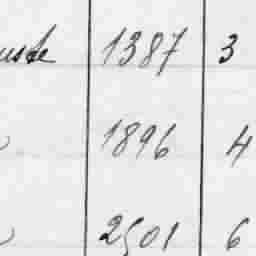 uste 1387 3
1896 4
2501 6